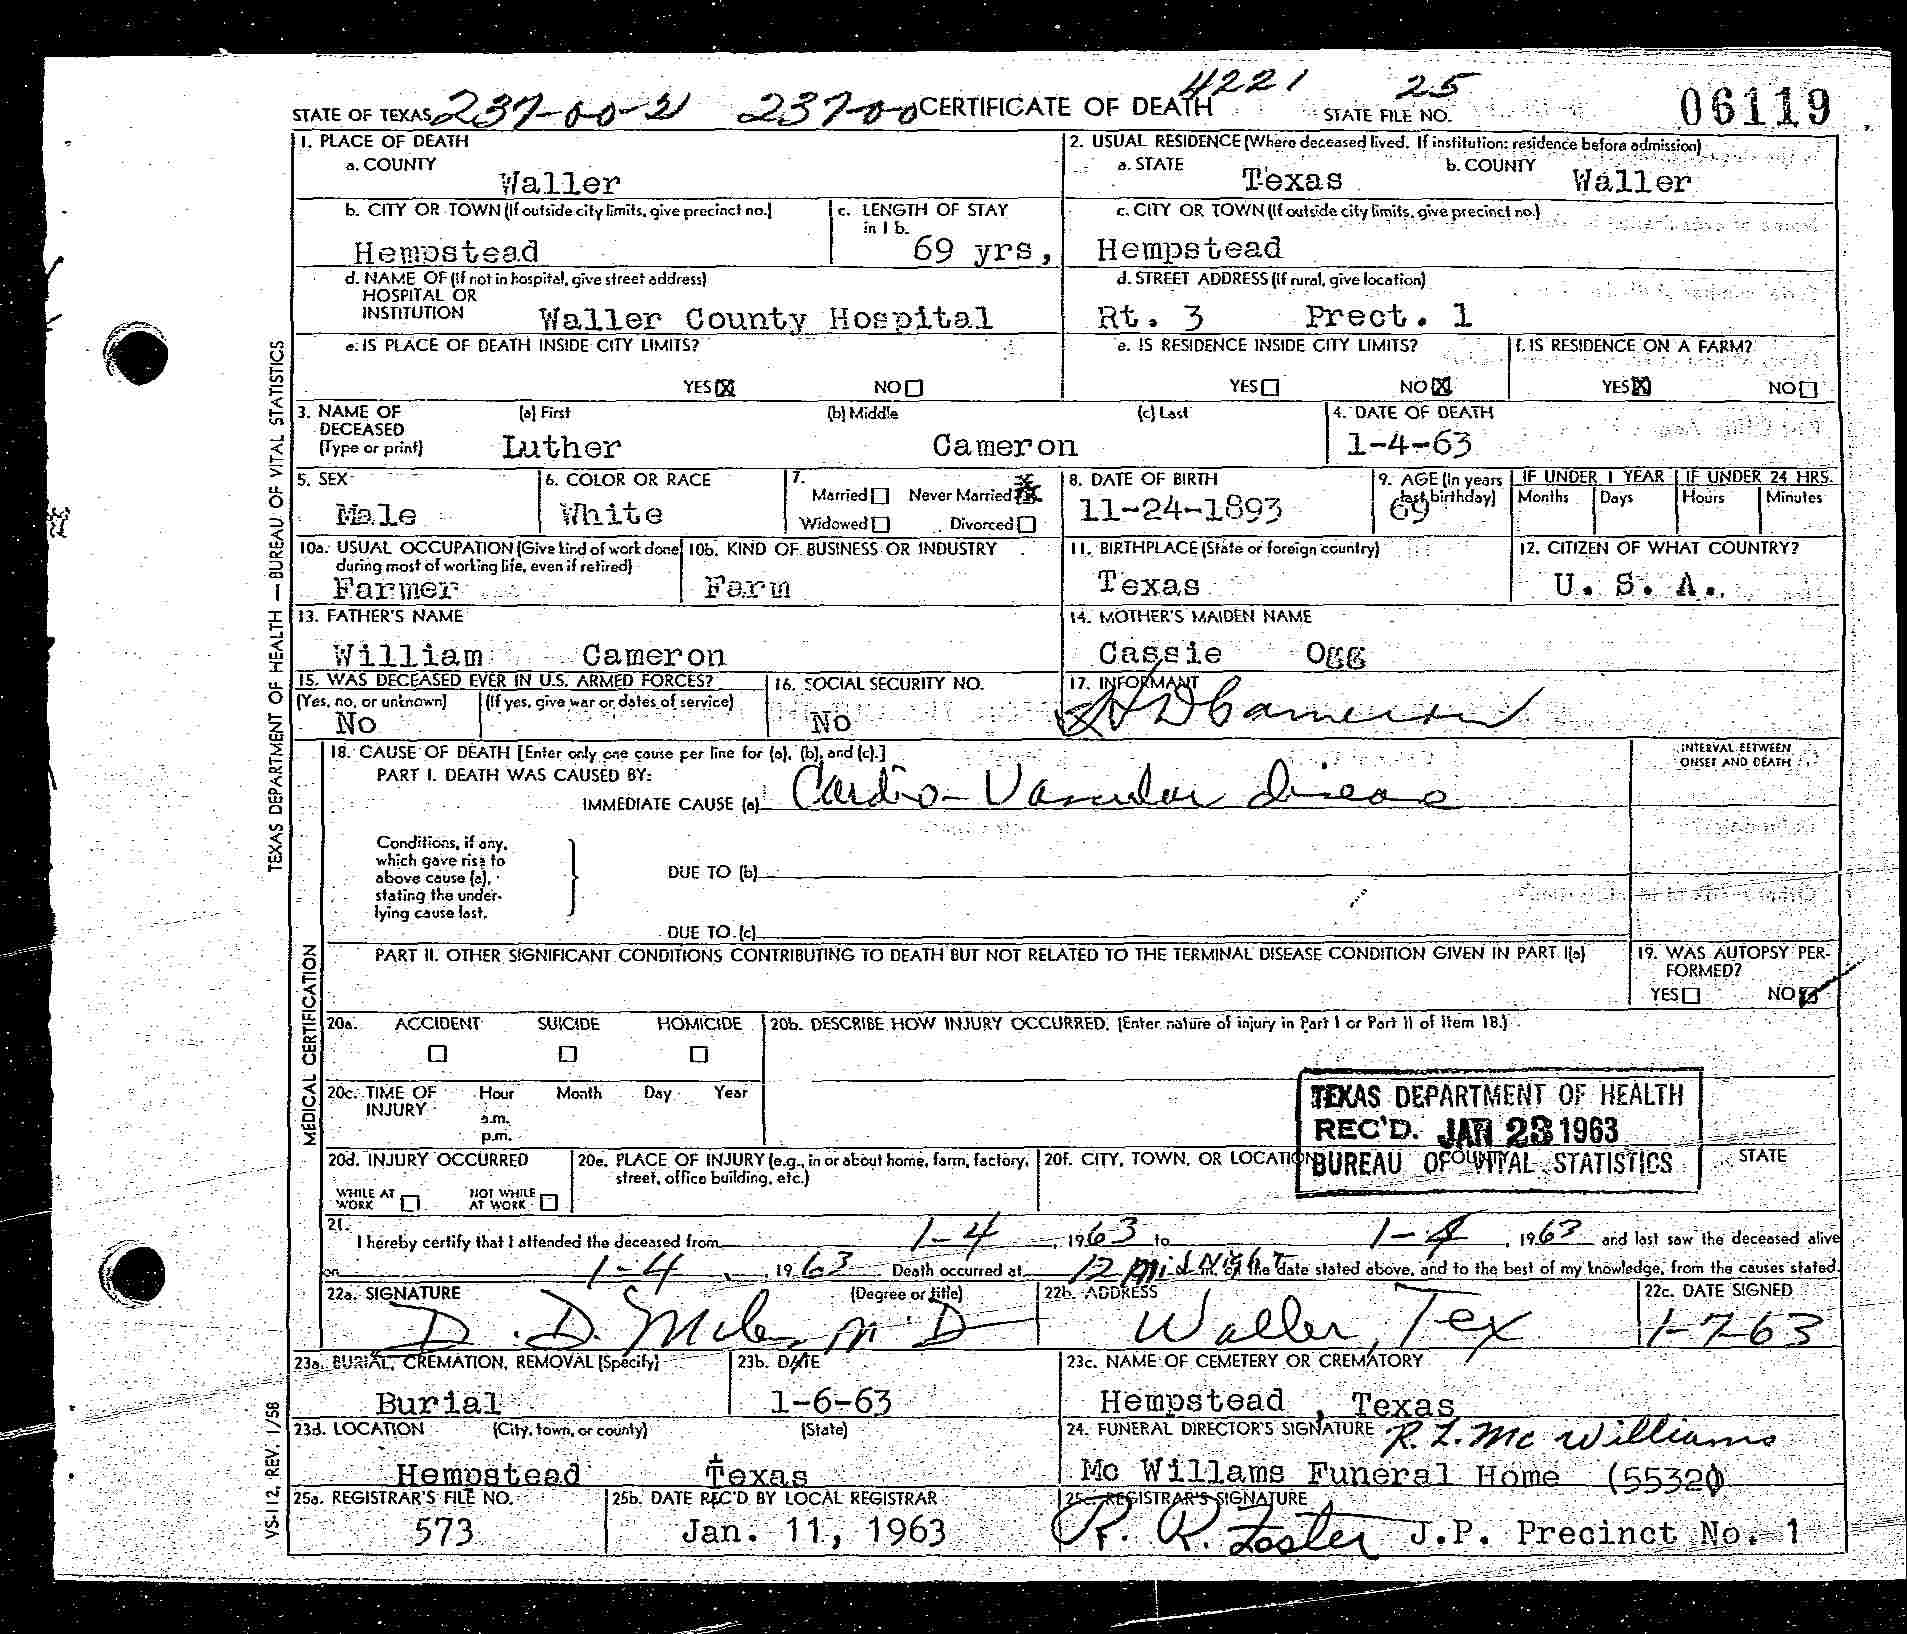 4221 25
STATE OF TEXAS 237-00-21 237-00 CERTIFICATE OF DEATH STATE FILE NO. 06119
1. PLACE OF DEATH
a. COUNTY
Waller
2. USUAL RESIDENCE (Where deceased lived. If institution: residence before admission)
a. STATE Texas b. COUNTY Waller
b. CITY OR TOWN (If outside city limits, give precinct no.)
Hempstead
c. LENGTH OF STAY
in 1 b.
69 yrs,
c. CITY OR TOWN (If outside city limits, give precinct no.)
Hempstead
d. NAME OF (If not in hospital, give street address)
HOSPITAL OR
INSTITUTION Waller County Hospital
d. STREET ADDRESS (If rural, give location)
Rt. 3 Prect. 1
e. IS PLACE OF DEATH INSIDE CITY LIMITS?
YES☒ NO☐
e. IS RESIDENCE INSIDE CITY LIMITS?
YES☐ NO☒
f. IS RESIDENCE ON A FARM?
YES☒ NO☐
3. NAME OF
DECEASED
(Type or print)
(a) First (b) Middle (c) Last
Luther Cameron
4. DATE OF DEATH
1-4-63
5. SEX
Male
6. COLOR OR RACE
White
7.
Married☐ Never Married☒
Widowed☐ Divorced☐
8. DATE OF BIRTH
11-24-1893
9. AGE (In years
last birthday)
69
IF UNDER 1 YEAR
Months Days
IF UNDER 24 HRS.
Hours Minutes
10a. USUAL OCCUPATION (Give kind of work done
during most of working life, even if retired)
Farmer
10b. KIND OF BUSINESS OR INDUSTRY
Farm
11. BIRTHPLACE (State or foreign country)
Texas
12. CITIZEN OF WHAT COUNTRY?
U. S. A.
13. FATHER'S NAME
William Cameron
14. MOTHER'S MAIDEN NAME
Cassie Ogg
15. WAS DECEASED EVER IN U.S. ARMED FORCES?
(Yes, no, or unknown) (If yes, give war or dates of service)
No
16. SOCIAL SECURITY NO.
No
17. INFORMANT
Cameron
18. CAUSE OF DEATH [Enter only one cause per line for (a), (b), and (c).]
PART I. DEATH WAS CAUSED BY:
IMMEDIATE CAUSE (a) Cardio-Vascular disease
INTERVAL BETWEEN
ONSET AND DEATH
Conditions, if any,
which gave rise to
above cause (a),
stating the under-
lying cause last.
DUE TO (b)
DUE TO (c)
PART II. OTHER SIGNIFICANT CONDITIONS CONTRIBUTING TO DEATH BUT NOT RELATED TO THE TERMINAL DISEASE CONDITION GIVEN IN PART I(a)
19. WAS AUTOPSY PER-
FORMED?
YES☐ NO☑
20a. ACCIDENT SUICIDE HOMICIDE
☐ ☐ ☐
20b. DESCRIBE HOW INJURY OCCURRED. (Enter nature of injury in Part I or Part II of Item 18.)
20c. TIME OF
INJURY
Hour Month Day Year
a.m.
p.m.
TEXAS DEPARTMENT OF HEALTH
REC'D. JAN 23 1963
BUREAU OF VITAL STATISTICS
20d. INJURY OCCURRED
WHILE AT
WORK ☐
NOT WHILE
AT WORK ☐
20e. PLACE OF INJURY (e.g., in or about home, farm, factory,
street, office building, etc.)
20f. CITY, TOWN, OR LOCATION COUNTY STATE
21.
I hereby certify that I attended the deceased from 1-4, 1963 to 1-4, 1963 and last saw the deceased alive
on 1-4, 1963 Death occurred at 12 Mid Night m. on the date stated above, and to the best of my knowledge, from the causes stated.
22a. SIGNATURE (Degree or title)
D. D. M.D
22b. ADDRESS
Waller, Tex
22c. DATE SIGNED
1-7-63
23a. BURIAL, CREMATION, REMOVAL (Specify)
Burial
23b. DATE
1-6-63
23c. NAME OF CEMETERY OR CREMATORY
Hempstead, Texas
23d. LOCATION (City, town, or county) (State)
Hempstead Texas
24. FUNERAL DIRECTOR'S SIGNATURE R. L. Mc Williams
Mc Willams Funeral Home (5532)
25a. REGISTRAR'S FILE NO.
573
25b. DATE REC'D BY LOCAL REGISTRAR
Jan. 11, 1963
25c. REGISTRAR'S SIGNATURE
R. R. Foster J.P. Precinct No. 1
TEXAS DEPARTMENT OF HEALTH — BUREAU OF VITAL STATISTICS
MEDICAL CERTIFICATION
VS-112, REV. 1/58